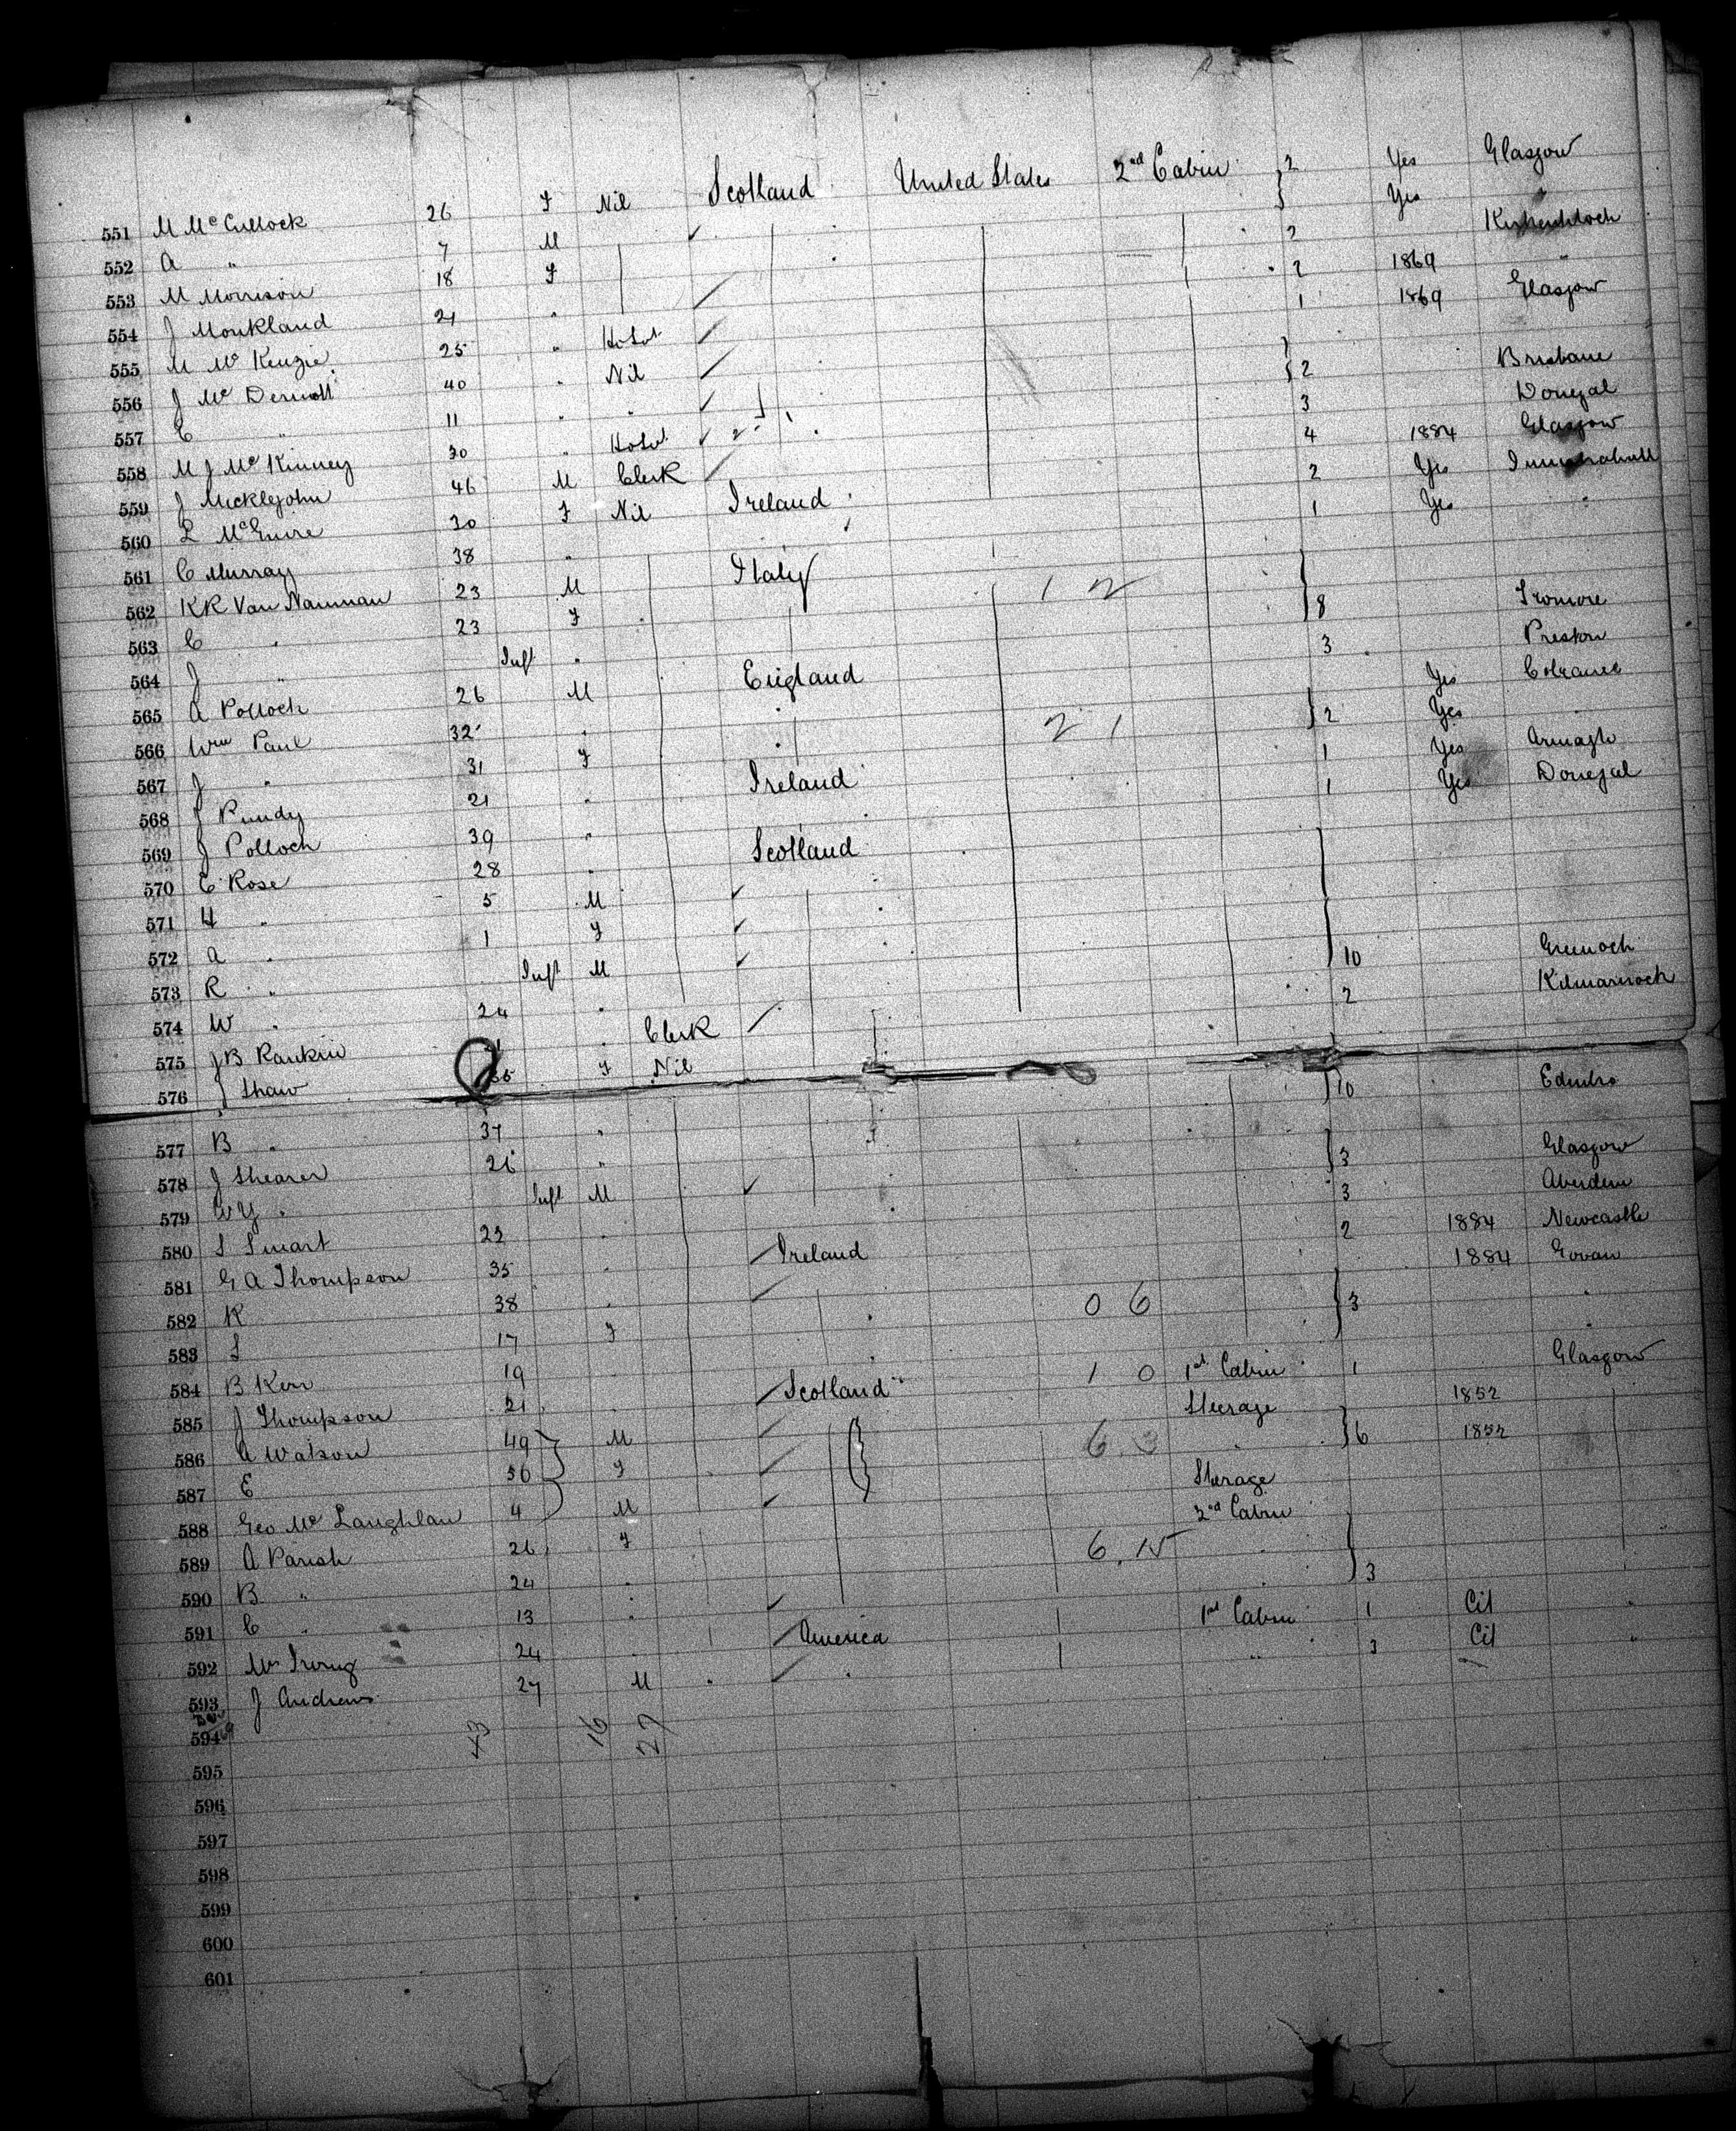 551 M McCullock 26 F Nil Scotland United States 2nd Cabin 2 Yes Glasgow
552 A " 7 M Yes
553 M Morrison 18 F 2
554 J Monkland 21 " 2 1869 "
555 M McKenzie 25 " 1 1869 Glasgow
556 J McDermott 40 " Nil
557 C " 11 " " 2 Brisbane
558 M J McKinney 30 " 3 Donegal
559 J Micklejohn 46 M Clerk 4 1884 Glasgow
560 L McGuire 30 F Nil Ireland 2 Yes
561 C Murray 38 " 1 Yes "
562 KR Van Namman 23 M Italy 1 2
563 C " 23 F 8
564 J " Inft " 3
565 A Pollock 26 M England Preston
566 Wm Paul 32 " Yes
567 J " 31 F 2 1 2 Yes
568 J Pundy 21 " Ireland 1 Yes Armagh
569 J Pollock 39 " 1 Yes Donegal
570 C Rose 28 " Scotland
571 H " 5 M
572 A " 1 F
573 R " Inft M 10
574 W " 24 " 2 Greenock
575 JB Rankin " Clerk Kilmarnock
576 J Shaw F Nil 10 Edinbro
577 B " 37 "
578 J Shearer 26 " 3 Glasgow
579 WY " Inft M 3 Aberdeen
580 S Smart 22 " 2 1884 Newcastle
581 G A Thompson 35 " Ireland 1884 Govan
582 K 38 " 0 6 3 "
583 S 17 F "
584 B Kerr 19 1 0 1st Cabin 1 Glasgow
585 J Thompson 21 Scotland Steerage 1852
586 A Watson 49 M 6 3 6 1852
587 E F Sterage
588 Geo McLaughlan 4 M 2nd Cabin
589 A Parish 26 F 6.15
590 B " 24 " 3
591 C " 13 " 1st Cabin 1 Cit "
592 24 America " 3 Cit "
593 J Andrews 27 M "
594 43 16 27
595
596
597
598
599
600
601